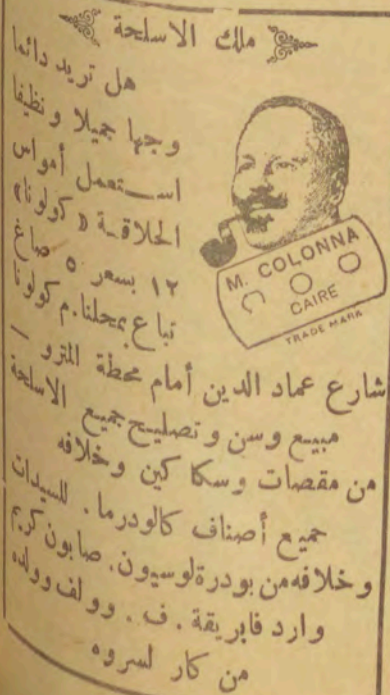 ملك الاسلحة
هل تريد دائما
وجها جميلا ونظيفا
استعمل أمواس
الحلاقة « كولونا »
١٢ بسعر ٥ صاغ
تباع بمحلنا . م كولونا
M. COLONNA
CAIRE
TRADE MARK
شارع عماد الدين أمام محطة المترو —
مبيع وسن وتصليح جميع الاسلحة
من مقصات وسكاكين وخلافه
جميع أصناف كالودرما . للسيدات
وخلافه من بودرة لوسيون . صابون كريم
وارد فابريقة . ف . وولف وولده
من كار لسروه